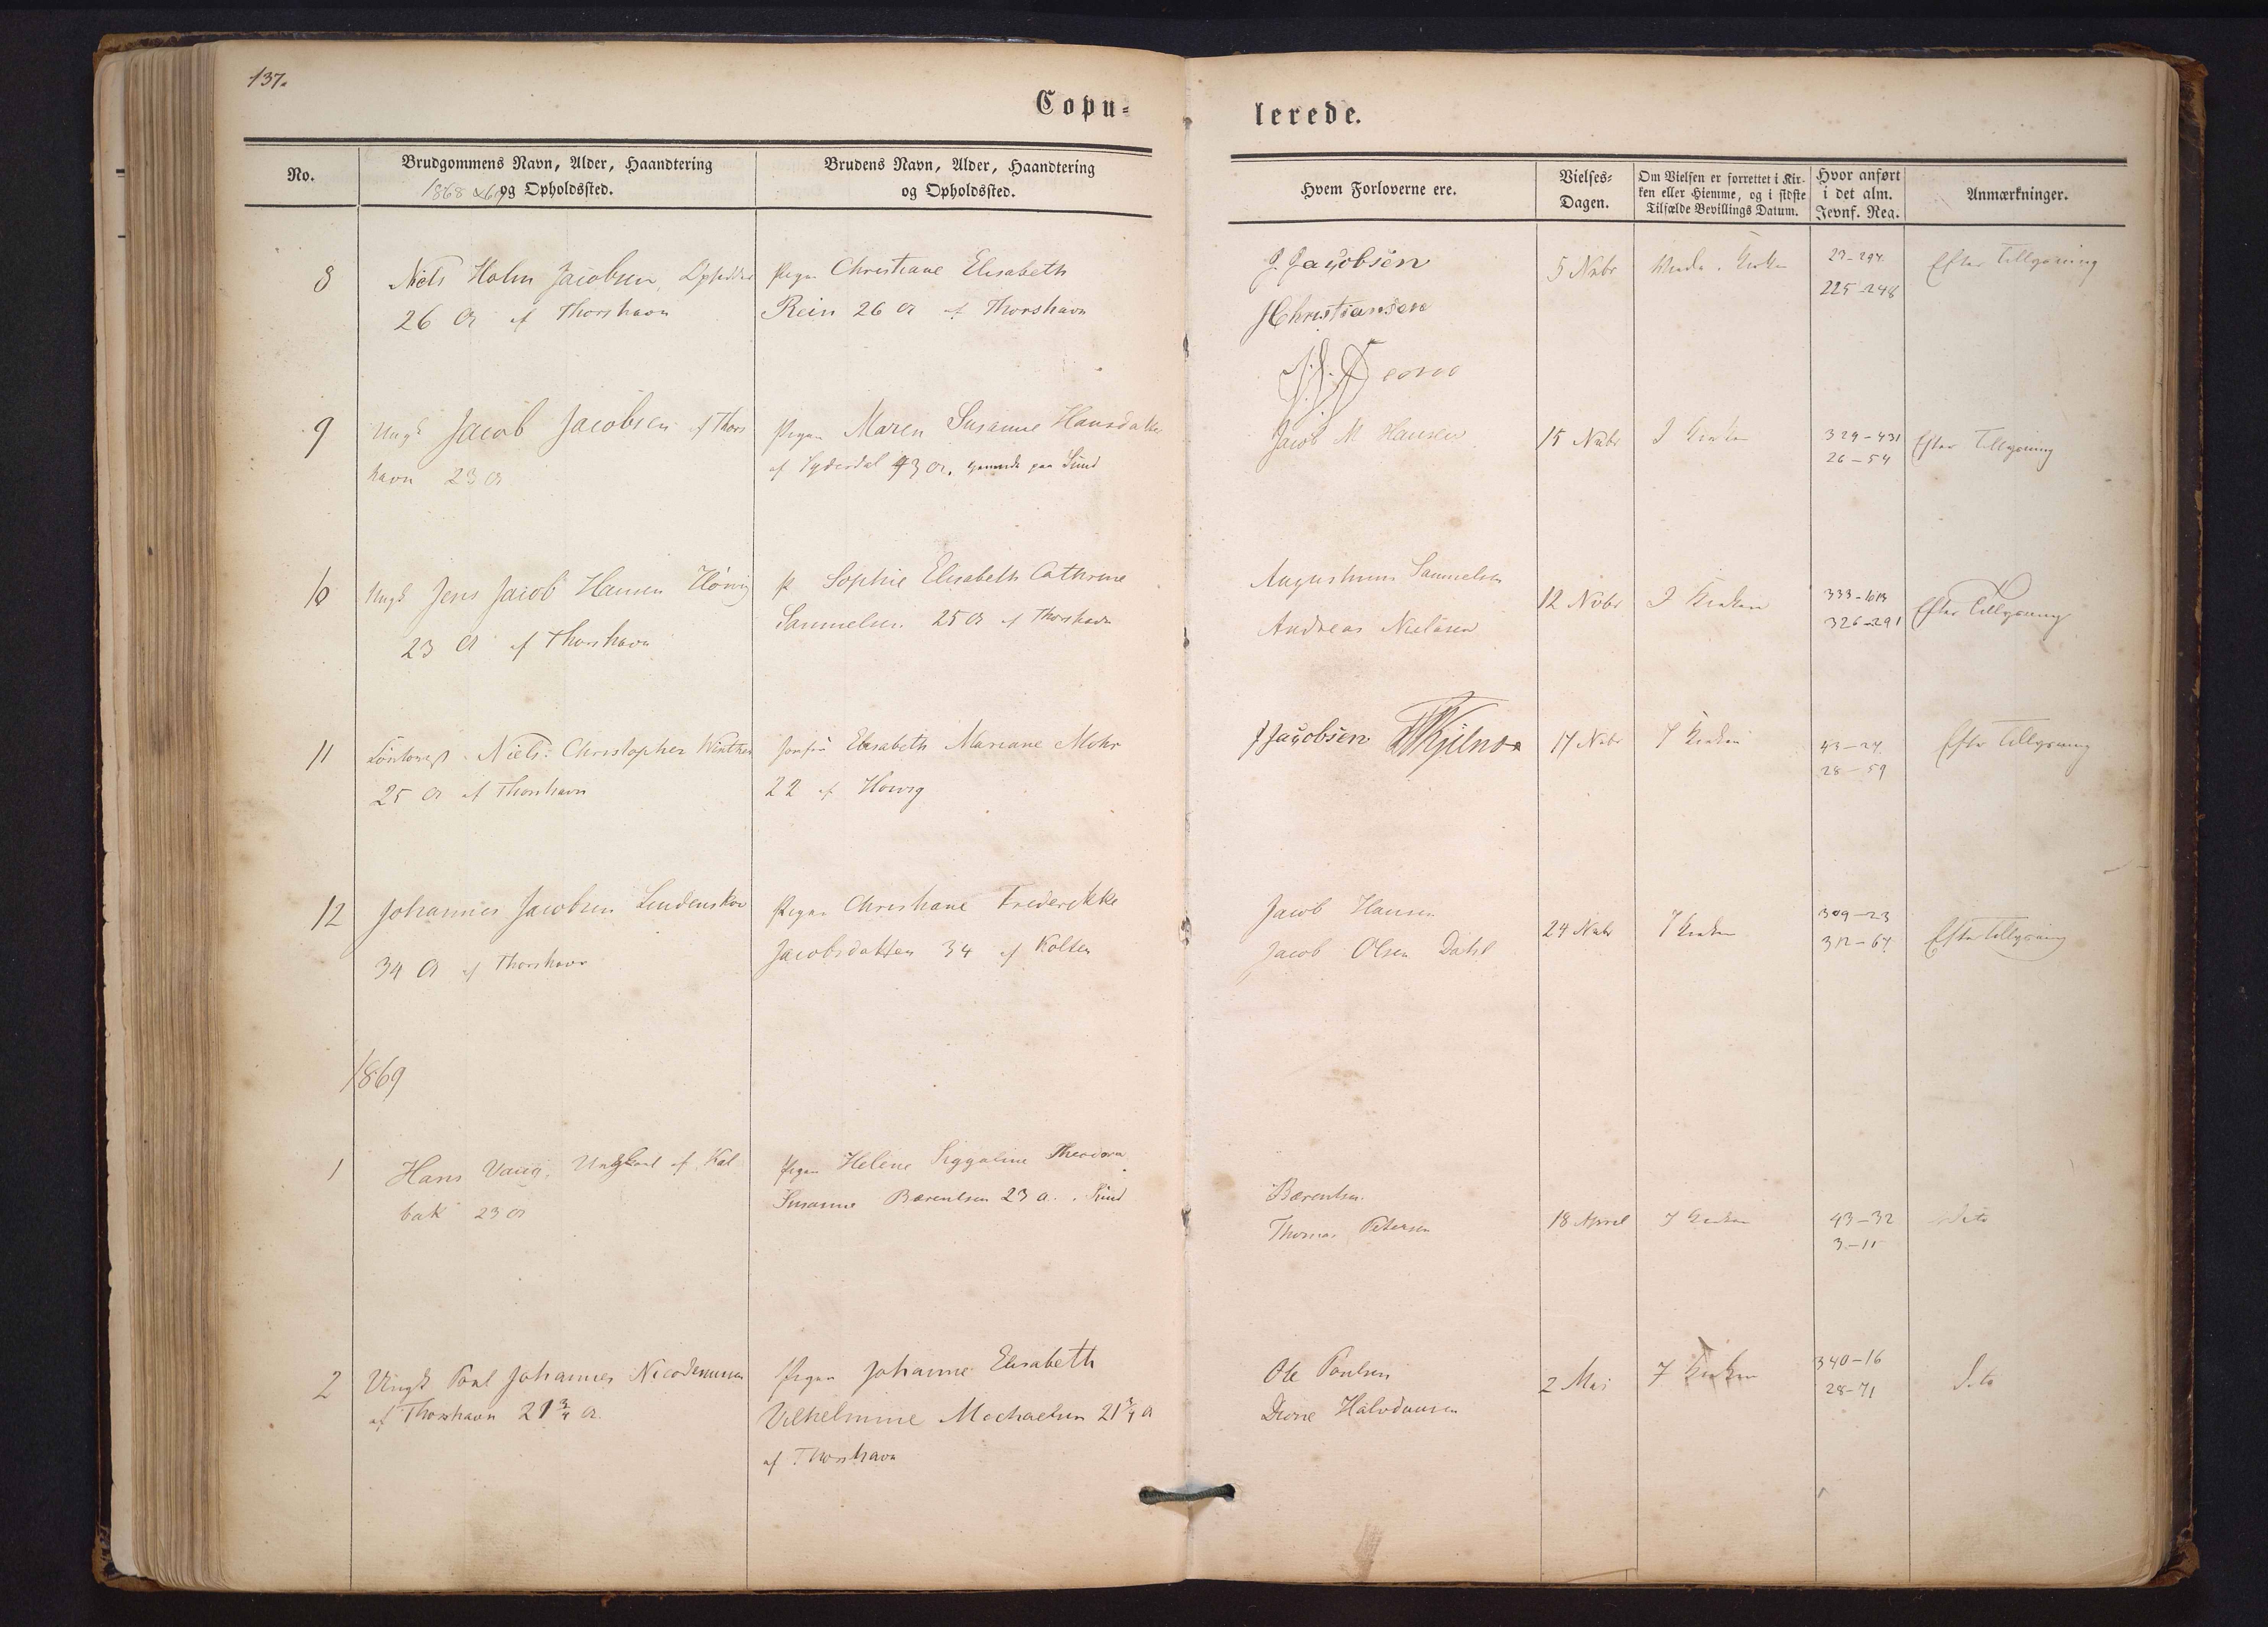 137.
Copu=
lerede.
No.
Brudgommens Navn, Alder, Haandtering
1868 & 69 og Opholdssted.
Brudens Navn, Alder, Haandtering
og Opholdssted.
Hvem Forloverne ere.
Vielses=
Dagen.
Om Vielsen er forrettet i Kir-
ken eller Hiemme, og i sidste
Tilfælde Bevillings Datum.
Hvor anført
i det alm.
Jevnf. Reg.
Anmærkninger.
8
Niels Holm Jacobsen,
26 A af Thorshavn
Pigen Christiane Elisabeth
Rein 26 A af Thorshavn
J. Jacobsen
HChristiansen
5 Nvbr
Kirken
23-294
225-248
Efter Tillysning
9
Ungk Jacob Jacobsen af Thors
havn 23 A
Pigen Maren Susanne Hansdatter
af Sydredal 43 A. paa Sund
Jacob M Hansen
15 Nvbr
I Kirken
329-431
26-54
Efter Tillysning
10
Ungk Jens Jacob Hansen
23 A af Thorshavn
P Sophie Elisabeth Cathrine
Samuelsen 25 A af Thorshavn
Augustinus Samuelsen
Andreas Nielsen
12 Nvbr
I Kirken
333-
326-291
Efter Tillysning
11
Niels Christopher Winther
25 A af Thorshavn
Jomfru Elisabeth Mariane Mohr
22 af Howig
JJacobsen
17 Nvbr
I Kirken
43-24
28-59
Efter Tillysning
12
Johannes Jacobsen Lendenskov
34 A af Thorshavn
Pigen Christiane Frederikke
Jacobsdatter 34 af Kolter
Jacob Hansen
Jacob Olsen Dahl
24 Nvbr
I Kirken
309-23
312-67
Efter Tillysning
1869
1
Hans Vang, Ungkarl af Kal
bak 23 A
Pigen Helene Siggaline Theodora
Susanne Bærentsen 23 A. Sund
Bærentsen
Thomas Petersen
18 April
I Kirken
43-32
3-11
Dito
2
Ungk Poul Johannes Nicodemussen
af Thorshavn 21 3/4 A.
Pigen Johanne Elisabeth
Vilhelmine Mechaelsen 21 3/4 A
af Thorshavn
Ole Poulsen
Halvdansen
2 Mai
I Kirken
340-16
28-71
Dito